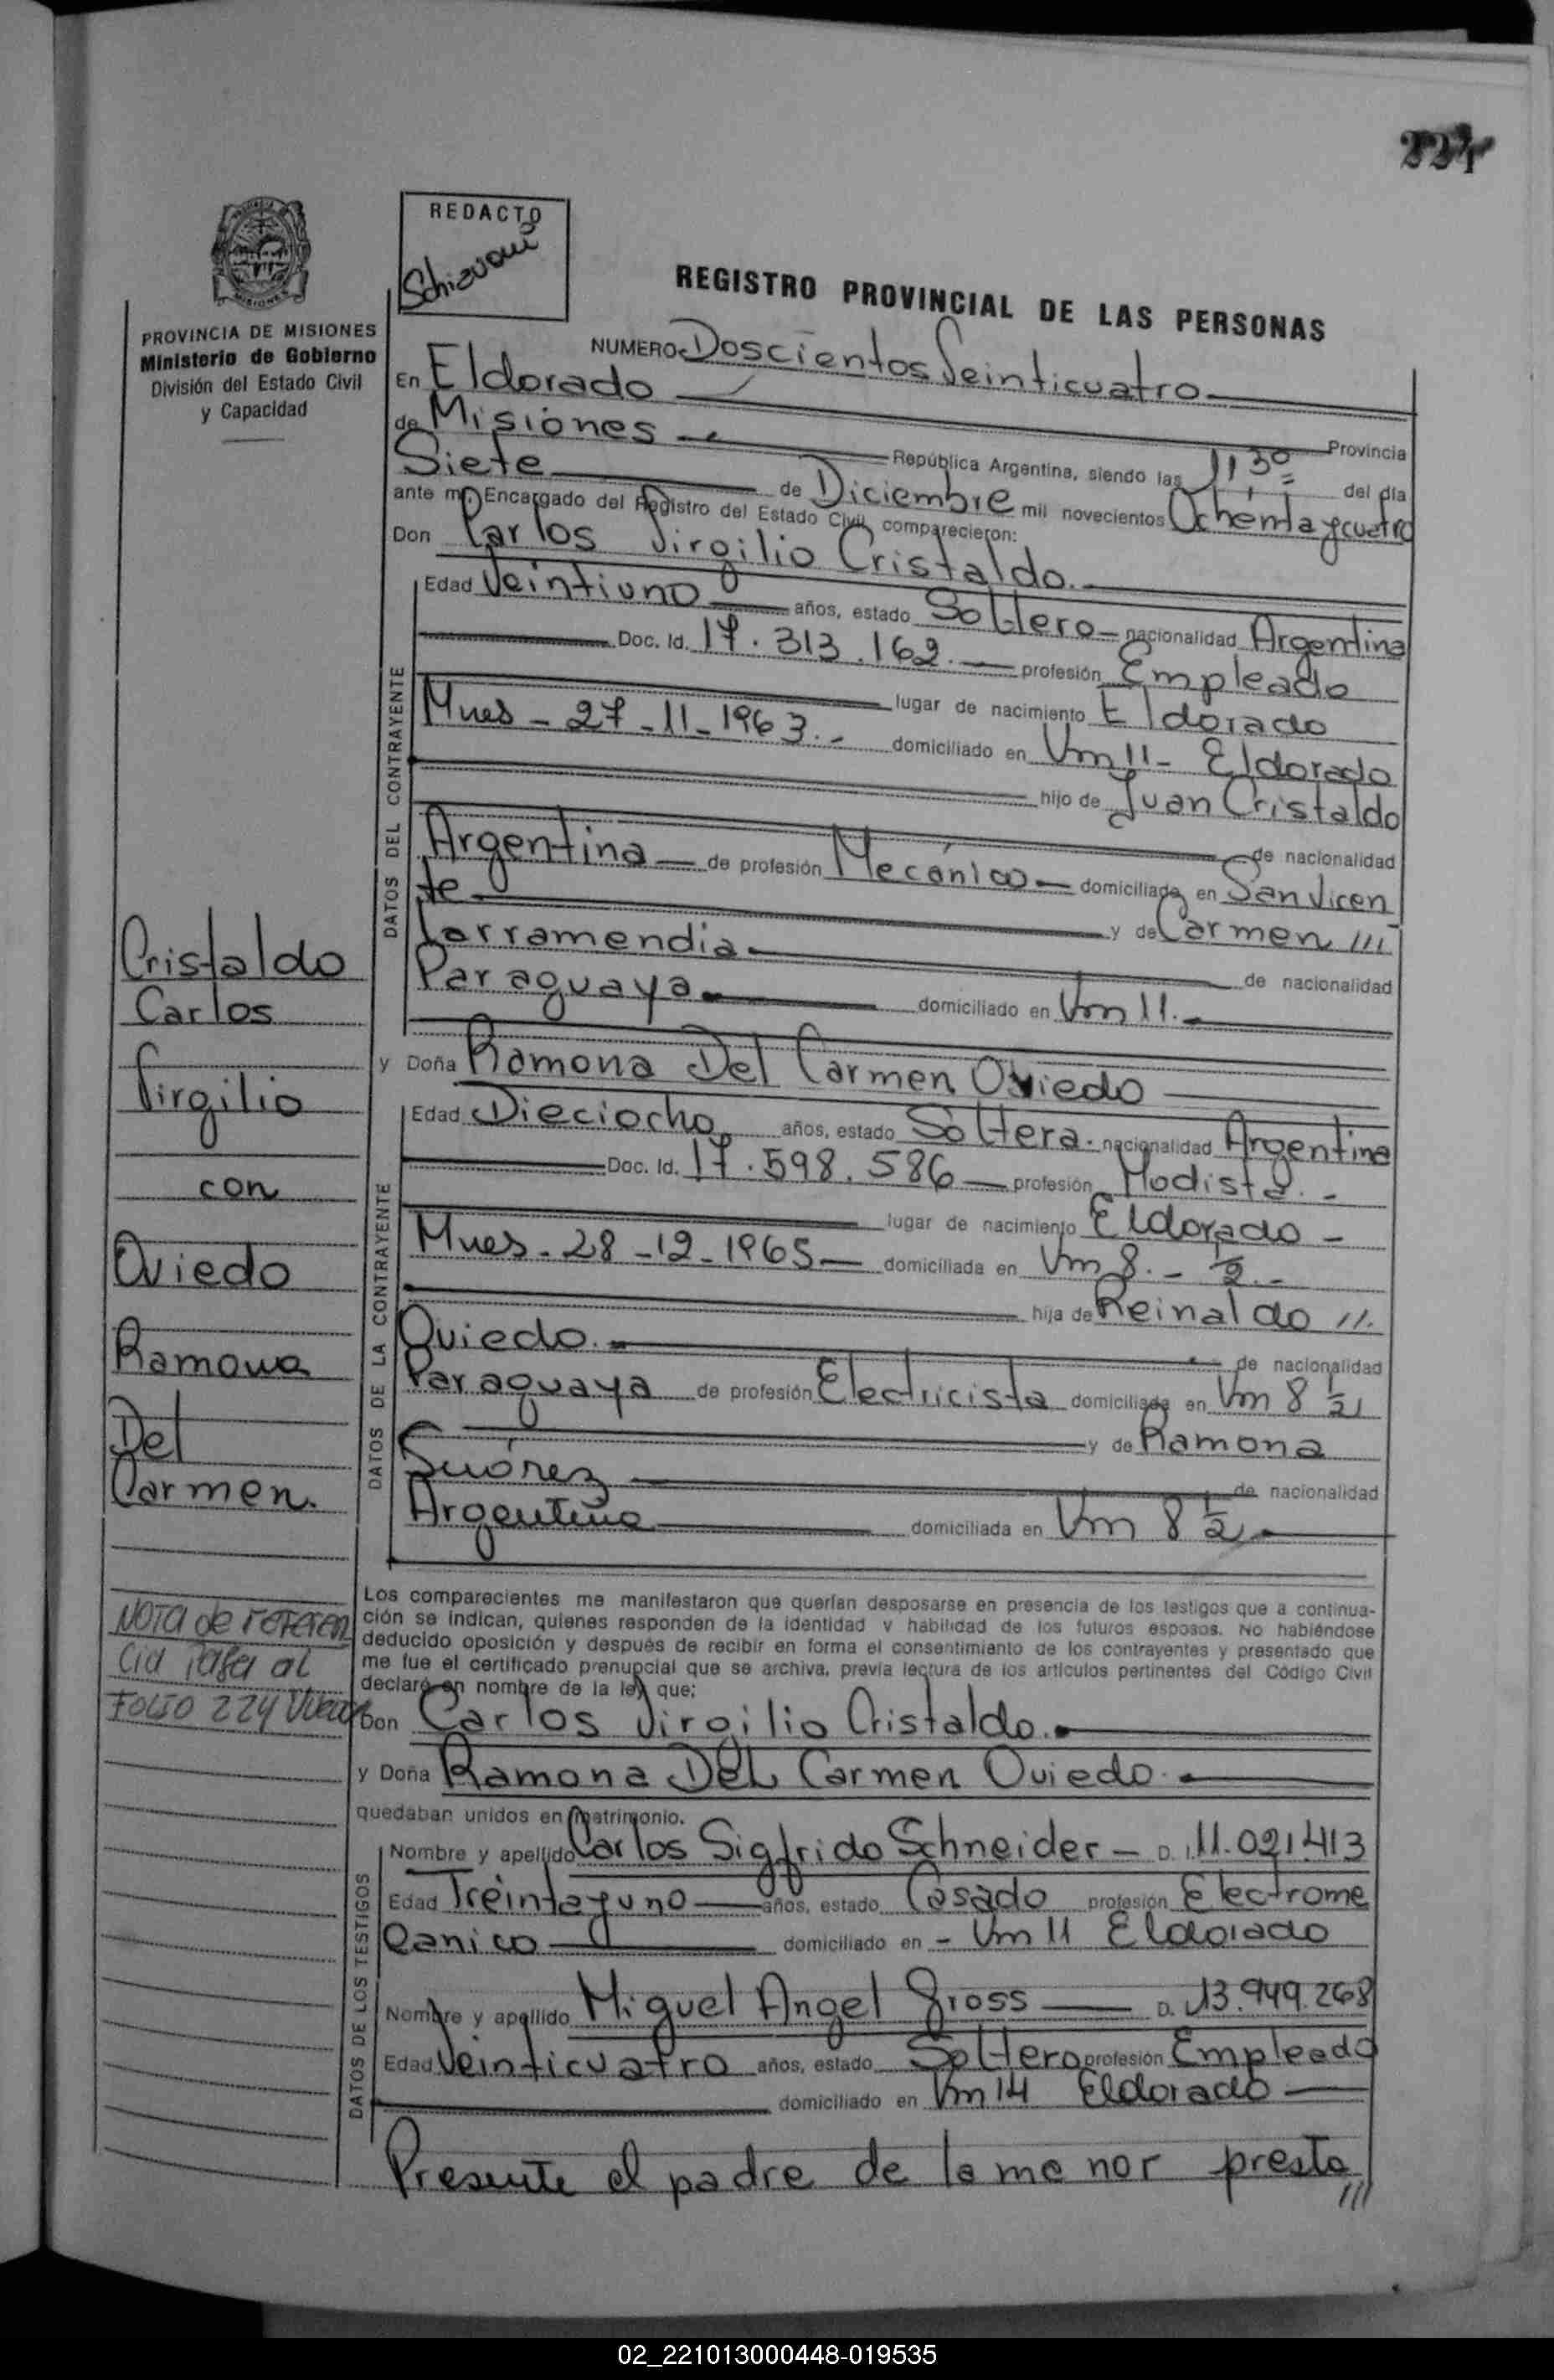 224
REDACTO
Schiavoni
PROVINCIA DE MISIONES
Ministerio de Gobierno
División del Estado Civil
y Capacidad
REGISTRO PROVINCIAL DE LAS PERSONAS
NUMERO Doscientos Veinticuatro
En Eldorado Provincia
de Misiones República Argentina, siendo las 11,30 del día
Siete de Diciembre mil novecientos Ochenta y cuatro
ante mí, Encargado del Registro del Estado Civil, comparecieron:
Don Carlos Virgilio Cristaldo.
DATOS DEL CONTRAYENTE
Edad Veintiuno años, estado Soltero nacionalidad Argentina
Doc. Id. 17.313.162. profesión Empleado
lugar de nacimiento Eldorado
Mnes - 27-11-1963.- domiciliado en Km 11- Eldorado
hijo de Juan Cristaldo
de nacionalidad
Argentina de profesión Mecánico domiciliado en San Vicen
te y de Carmen ///
Larramendia de nacionalidad
Paraguaya domiciliado en Km 11.
y Doña Ramona Del Carmen Oviedo
DATOS DE LA CONTRAYENTE
Edad Dieciocho años, estado Soltera. nacionalidad Argentina
Doc. Id. 17.598.586 profesión Modista.-
lugar de nacimiento Eldorado -
Mnes - 28-12-1965 domiciliada en Km 8.- ½.-
hija de Reinaldo //.
Oviedo. de nacionalidad
Paraguaya de profesión Electricista domiciliado en Km 8 ½
y de Ramona
Suárez de nacionalidad
Argentina domiciliada en Km 8 ½
Cristaldo
Carlos
Virgilio
con
Oviedo
Ramona
Del
Carmen.
NOTA de referen
cia pasa al
FOLIO 224 Vuelto
Los comparecientes me manifestaron que querían desposarse en presencia de los testigos que a continua-
ción se indican, quienes responden de la identidad y habilidad de los futuros esposos. No habiéndose
deducido oposición y después de recibir en forma el consentimiento de los contrayentes y presentado que
me fue el certificado prenupcial que se archiva, previa lectura de los artículos pertinentes del Código Civil
declaré en nombre de la ley que:
Don Carlos Virgilio Cristaldo.
y Doña Ramona Del Carmen Oviedo.
quedaban unidos en matrimonio.
DATOS DE LOS TESTIGOS
Nombre y apellido Carlos Sigfrido Schneider - D. I. 11.021.413
Edad Treinta y uno años, estado Casado profesión Electrome
canico domiciliado en - Km 11 Eldorado
Nombre y apellido Miguel Angel Gross D. 13.949.268
Edad Veinticuatro años, estado Soltero profesión Empleado
domiciliado en Km 14 Eldorado
Presente el padre de la menor presta ///
02_221013000448-019535